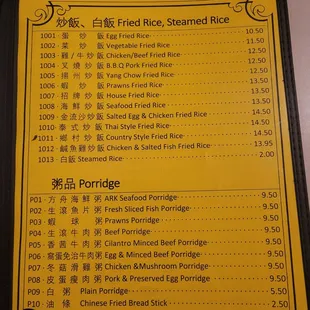 炒飯、白飯 Fried Rice, Steamed Rice
1001 · 蛋 炒 飯 Egg Fried Rice 10.50
1002 · 菜 炒 飯 Vegetable Fried Rice 11.50
1003 · 雞/牛炒飯 Chicken/Beef Fried Rice 11.50
1004 · 叉燒炒飯 B.B.Q Pork Fried Rice 12.50
1005 · 揚州炒飯 Yang Chow Fried Rice 12.50
1006 · 蝦 炒 飯 Prawns Fried Rice 13.50
1007 · 招牌炒飯 House Fried Rice 13.50
1008 · 海鮮炒飯 Seafood Fried Rice 13.50
1009 · 金流沙炒飯 Salted Egg & Chicken Fried Rice 14.50
1010 · 泰式炒飯 Thai Style Fried Rice 14.50
1011 · 鄉村炒飯 Country Style Fried Rice 14.50
1012 · 鹹魚雞炒飯 Chicken & Salted Fish Fried Rice 13.95
1013 · 白飯 Steamed Rice 2.00
粥品 Porridge
P01 · 方舟海鮮粥 ARK Seafood Porridge 9.50
P02 · 生滾魚片粥 Fresh Sliced Fish Porridge 9.50
P03 · 蝦 球 粥 Prawns Porridge 9.50
P04 · 生滾牛肉粥 Beef Porridge 9.50
P05 · 香茜牛肉粥 Cilantro Minced Beef Porridge 9.50
P06 · 窩蛋免治牛肉粥 Egg & Minced Beef Porridge 9.50
P07 · 冬菇滑雞粥 Chicken & Mushroom Porridge 9.50
P08 · 皮蛋瘦肉粥 Pork & Preserved Egg Porridge 9.50
P09 · 白 粥 Plain Porridge 5.50
P10 · 油 條 Chinese Fried Bread Stick 2.50